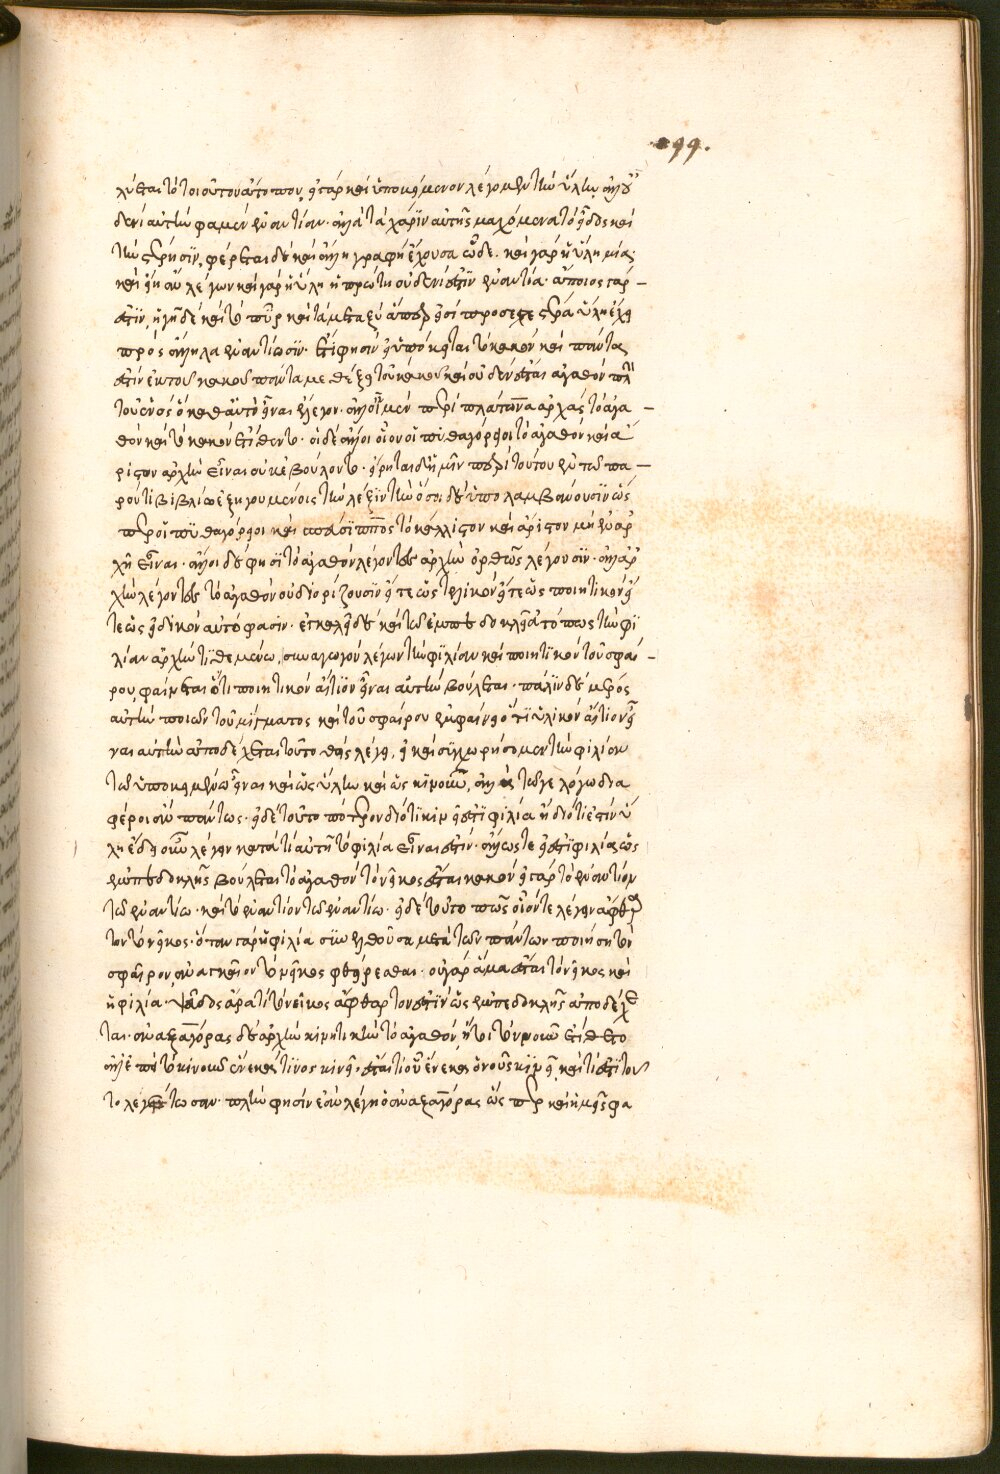 199.
λύεται τὸ τοιοῦτον ἄτοπον, εἰ γὰρ καὶ ὑποκείμενον λέγομεν τὴν ὕλην, ἀλλ' οὐ
δενί αὐτήν φαμεν ἐναντίον· ἀλλὰ τὰ χάριν αὐτῆς μαχόμενα τὸ εἶδος καὶ
τὴν στέρησιν, φέρεται δὲ καὶ ἄλλη γραφὴ ἔχουσα ὧδε. καὶ γὰρ ἡ ὕλη μία·
καὶ εἴη ἂν λέγων καὶ γὰρ ἡ ὕλη ἡ πρώτη οὐδενί ἐστιν ἐναντία· ἄποιος γάρ
ἐστιν, ἡ γῆ δὲ καὶ τὸ πῦρ καὶ τὰ μεταξὺ ἅπερ εἰσὶ προσεχέστερα ὕλη ἔχει
πρὸς ἄλληλα ἐναντίωσιν· ἔτι φησὶν εἰ ὑπόκειται τὸ κακὸν καὶ πάντα
ἐστὶν ἐκ τοῦ κακοῦ πάντα μεθέξει τοῦ κακοῦ καὶ οὐδὲν ἔσται ἀγαθὸν πλὴν
τοῦ ἑνὸς ὃ καθ' αὑτὸ εἶναι ἔλεγον· ἀλλ' οἱ μὲν περὶ πλάτωνα ἀρχὰς τὸ ἀγα
θὸν καὶ τὸ κακὸν ἐτίθεντο· οἱ δὲ ἄλλοι οἷον οἱ πυθαγόρειοι τὸ ἀγαθὸν καὶ ἄ
ριστον ἀρχὴν εἶναι οὐκ ἐβούλοντο· εἴρηται δὲ ἡμῖν περὶ τούτου ἐν τῷ πα
ρόντι βιβλίῳ ἐξηγουμένοις τὴν λέξιν τὴν ὅσοι δὲ ὑπολαμβάνουσιν ὥς
περ οἱ πυθαγόρειοι καὶ σπεύσιππος τὸ κάλλιστον καὶ ἄριστον μὴ ἐν ἀρ
χῇ εἶναι· ἄλλοι δέ φησι τὸ ἀγαθὸν λέγοντες ἀρχὴν ὀρθῶς λέγουσιν· ἀλλ' ἀρ
χὴν λέγοντες τὸ ἀγαθὸν οὐ διορίζουσιν εἴτε ὡς τελικὸν εἴτε ὡς ποιητικὸν εἴ
τε ὡς εἰδικὸν αὐτό φασιν· ἐγκαλεῖ δὲ καὶ τῷ ἐμπεδοκλεῖ ἀτόπως τὴν φι
λίαν ἀρχὴν τιθεμένῳ, συναγωγοῦ λέγων τὴν φιλίαν καὶ ποιητικὸν τοῦ σφαί
ρου, φαίνεται ὅτι ποιητικὸν αἴτιον εἶναι αὐτὴν βούλεται· πάλιν δὲ μέρος
αὐτὴν ποιῶν τοῦ μίγματος καὶ τοῦ σφαίρου ἐμφαίνει ὅτι ὑλικὸν αἴτιον εἶ
ναι αὐτὴν ἀποδέχεται τοῦτο θεὶς λέγει, εἰ καὶ συγχωρήσομεν τὴν φιλίαν
τῷ ὑποκειμένῳ εἶναι καὶ ὡς ὕλην καὶ ὡς κινοῦν, ἀλλὰ τῷ γε λόγῳ δια
φέροι ἂν πάντως· εἰ δὲ τοῦτο πότερον διότι κινεῖ ἐστὶ φιλία ἢ διότι ἐστὶν ὕ
λη ἔδει οὖν λέγειν κατὰ τί αὐτῇ τὸ φιλία εἶναι ἐστίν· ἄλλως τε εἰ ἔστι φιλία, ὡς
ἐμπεδοκλῆς βούλεται τὸ ἀγαθὸν τὸ νεῖκος ἔσται κακόν εἰ γὰρ τὸ ἐναντίον
τῷ ἐναντίῳ· καὶ τὸ ἐναντίον τῷ ἐναντίῳ· εἰ δὲ τοῦτο πῶς οἷόν τε λέγειν ἄφθαρ
τον τὸ νεῖκος· ὅταν γὰρ ἡ φιλία συνελθοῦσα μετὰ τῶν πάντων ποιήσῃ τὸν
σφαῖρον, ἀναγκαῖον τὸ νεῖκος φθείρεσθαι· οὐ γὰρ ἅμα ἔσται τὸ νεῖκος καὶ
ἡ φιλία· ψεῦδος ἄρα τὸ τὸ νεῖκος ἄφθαρτον ἐστὶν ὡς ἐμπεδοκλῆς ἀποδέχε
ται. ἀναξαγόρας δὲ ἀρχὴν κινητικὴν τὸ ἀγαθόν, ἤτοι τὸν νοῦν ἐτίθετο
ἀλλ' ἐπεὶ τὸ κινοῦν ἕνεκά τινος κινεῖ, ἔσται τι οὗ ἕνεκα ὁ νοῦς κινεῖ, καὶ τί ἐστι τοῦ
το λεγέτωσαν· πλὴν φησὶν ἐὰν λέγῃ ὁ ἀναξαγόρας ὥς περ καὶ ἡμεῖς φα